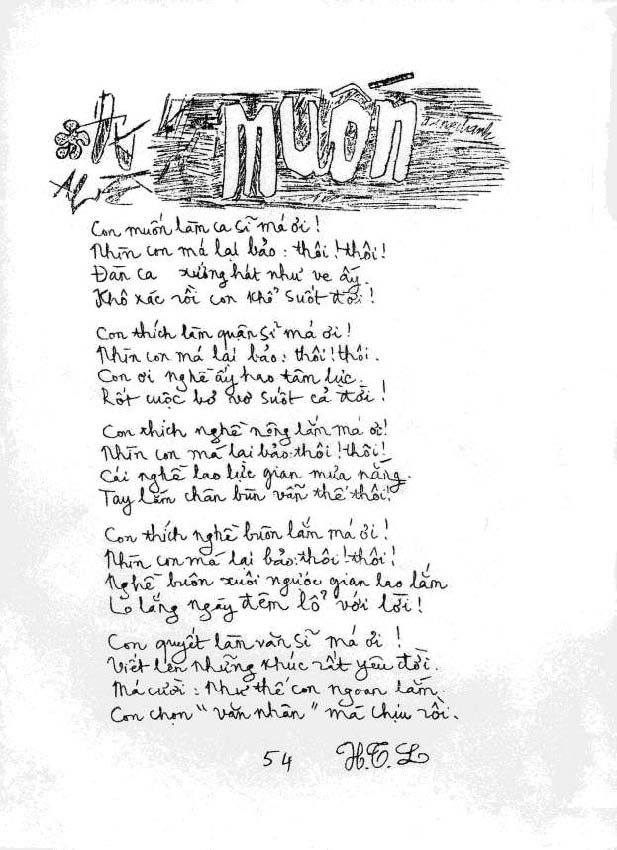 muốn
Con muốn làm ca sĩ má ơi!
Nhìn con má lại bảo: thôi! thôi!
Đàn ca xướng hát như ve ấy.
Khô xác rồi con khổ suốt đời!
Con thích làm quân sĩ má ơi!
Nhìn con má lại bảo: thôi! thôi.
Con ơi nghề ấy hao tâm lực.
Rốt cuộc bơ vơ suốt cả đời!
Con thích nghề nông lắm má ơi!
Nhìn con má lại bảo: thôi! thôi!
Cái nghề lao lực gian mưa nắng.
Tay lấm chân bùn vẫn thế thôi!
Con thích nghề buôn lắm má ơi!
Nhìn con má lại bảo: thôi! thôi!
Nghề buôn xuôi ngược gian lao lắm
Lo lắng ngày đêm lổ với lời!
Con quyết làm văn sĩ má ơi!
Viết lên những khúc rất yêu đời.
Má cười: Như thế con ngoan lắm.
Con chọn "văn nhân" má chịu rồi.
54 H.T.L